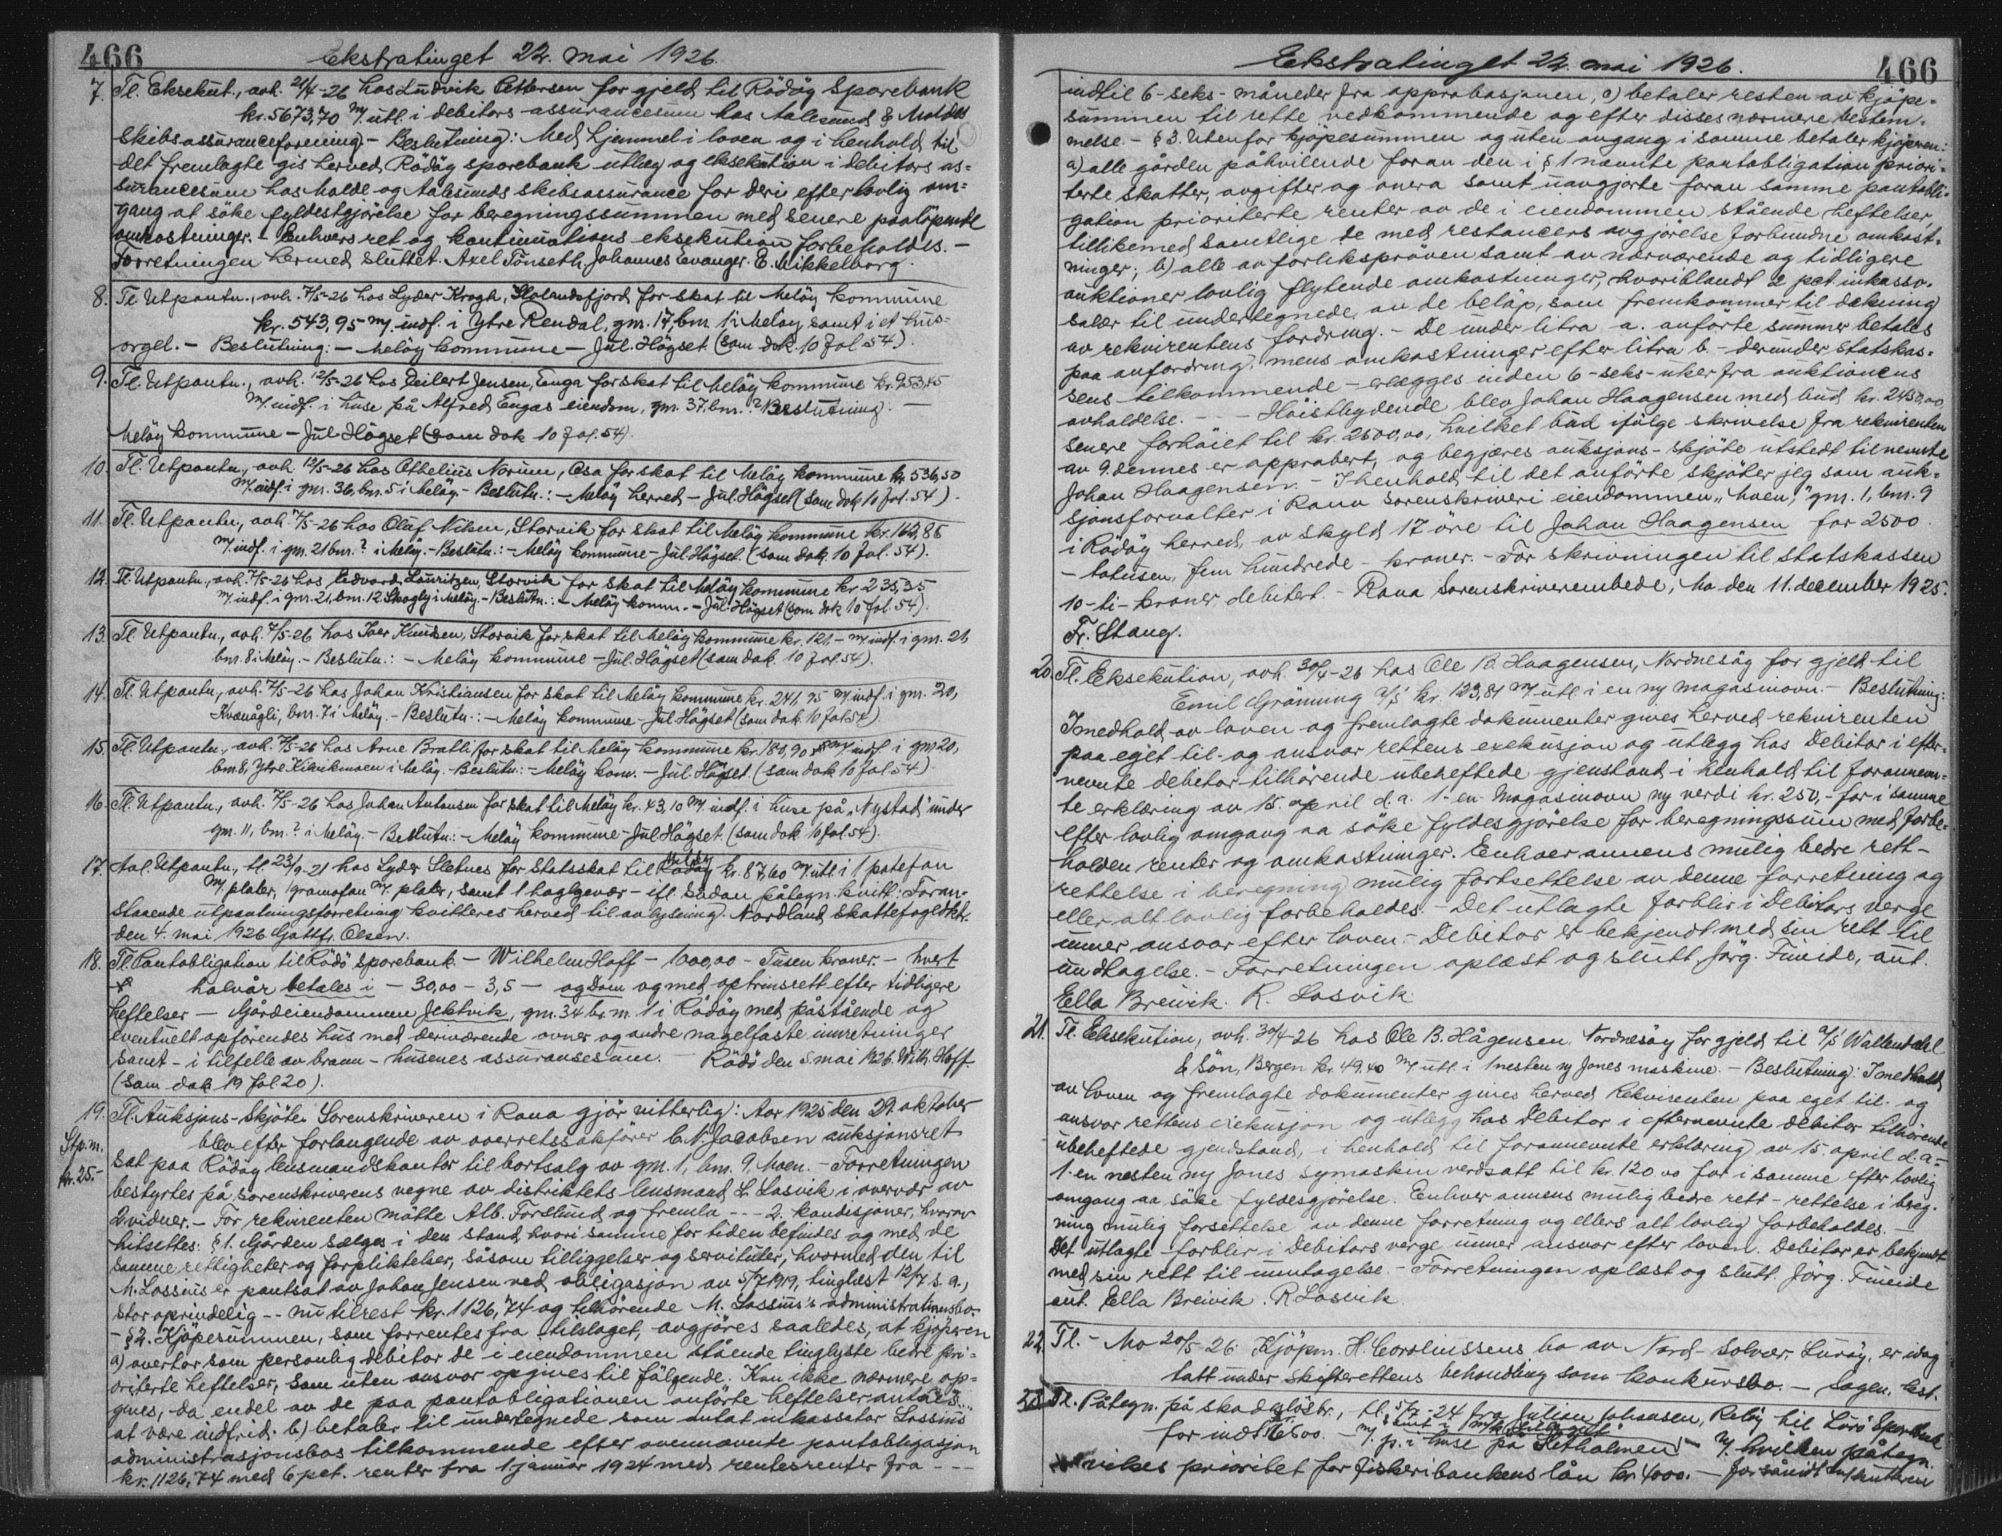 466
Ekstratinget 22. mai 1926.
7. Tl. Eksekut., avh. 21/4-26 hos Ludvik Pettersen for gjeld til Rödöy Sparebank
kr. 5673,70 m/ utl. i debitors assurancesum hos Aalesund & Molde
skibsassuranceforening. - Beslutning: Med hjemmel i loven og i henhold til
det fremlagte gis herved Rödöy sparebank utlæg og eksekution i debitors as-
surancesum hos Molde og Aalsunds skibsassurance for deri efter lovlig om-
gang at söke fyldestgjörelse for beregningssummen med senere paalöpende
omkostninger. - Enhvers ret og kontinuations eksekution forbeholdes. -
Forretningen hermed sluttet. Axel Tönseth, Johannes Evanger. E. Mikkelborg.
8. Tl. Utpantn., avh. 7/5-26 hos Lyder Krogh, Holandsfjord for skat til Melöy kommune
kr. 543,95 m/ indf. i Ytre Rendal, gm. 17, bm 1 i Melöy samt i et hus-
orgel. - Beslutning: - Melöy kommune - Jul. Högset (som dok. 10 fol. 54).
9. Tl. Utpantn., avh. 12/5-26 hos Peilert Jensen, Enga for skat til Melöy kommune kr. 253,45
m/ indf. i huse på Alfred Engas eiendom, gm. 37, bm. ? Beslutning. -
Melöy kommune - Jul. Högset (som dok 10 fol. 54).
10. Tl. Utpantn., avh. 12/5-26 hos Othelius Norum, Osa for skat til Melöy kommune kr. 536,50
m/ indf. i gm. 36, bm. 5 i Melöy. - Beslutn.: - Melöy herred - Jul. Högset (som dok 10 fol. 54).
11. Tl. Utpantn., avh. 7/5-26 hos Olaf Nilsen, Storvik for skat til Melöy kommune kr. 162,85
m/ indf. i gm. 21 bm. ? i Melöy. - Beslutn.: - Melöy kommune - Jul. Högset. (som dok. 10 fol. 54).
12. Tl. Utpantn., avh. 7/5-26 hos Edvard Lauritzen, Storvik for skat til Melöy kommune kr 235,35
m/ indf. i gm. 21, bm. 12 Skogly i Melöy. - Beslutn.: - Melöy komm. - Jul. Högset (som dok 10 fol. 54).
13. Tl. Utpantn., avh. 7/5-26 hos Iver Knutsen, Storvik for skat til Melöy kommune kr. 121,- m/ indf. i gm. 21,
bm. 8 i Melöy. - Beslutn.: - Melöy kommune - Jul. Högset (som dok. 10 fol. 54).
14. Tl. Utpantn., avh. 7/5-26 hos Johan Kristiansen for skat til Melöy kommune kr. 241,95 m/ indf. i gm. 20,
bm. 7 i Melöy. - Beslutn.: - Melöy kommune - Jul. Högset (som dok 10 fol 54)
15. Tl. Utpantn., avh. 7/5-26 hos Arne Bratli for skat til Melöy kommune kr. 180,90 m/ indf. i gm 20,
bm 8, Ytre i Melöy. - Beslutn.: - Melöy kom. - Jul. Högset. (som dok 10 fol. 54).
16. Tl. Utpantn., avh. 7/5-26 hos Johan Antonsen for skat til Melöy kr. 43,10 m/ indf. i huse på "Nystad" under
gm. 11, bm. ? i Melöy. - Beslutn.: - Melöy kommune - Jul. Högset. (som dok 10 fol. 54).
17. Avl. Utpantn., tl. 23/9-21 hos Lyder Sletnes for Statsskat til Melöy Rödöy kr. 87,60 m/ utl. i 1 patefon
m/ plater, 1 gramofon m/ plater, samt 1 haglgevær - ifl. sådan påtegn. kvitl.: Foran-
staaende utpantningsforretning kvitteres herved til avlysning. Nordland skattefogedktr.
den 4. mai 1926 Gottfr. Olsen.
18. Tl. Pantobligation til Rödö sparebank. - Wilhelm Hoff - 1000,00 - Tusen kroner. - hvert
halvår betales i - 30,00 - 3,5 - og Dom og med optrinsrett efter tidligere
heftelser - Gårdeiendommen Jektvik, gm. 34 br. m. 1 i Rödöy med påstående og
eventuelt opförendes hus med derværende ovner og andre nagelfaste innretninger
samt - i tilfelle av brann - husenes assuransesum. - Rödö den 5. mai 1926. Wilh. Hoff.
(som dok 19 fol 20).
19. Tl. Auksjons-Skjöte. Sorenskriveren i Rana gjör vitterlig: Aar 1925 den 29. oktober
blev efter forlangende av overretssakförer C. N. Jacobsen auksjonsret
Stp. m.
kr. 25.-
sat paa Rödöy lensmandskontor til bortsalg av gm. 1, bm. 9. Moen. - Forretningen
bestyrtes på sorenskriverens vegne av distriktets lensmand L. Losvik i overvær av
2 vidner. - For rekvirenten mötte Alb. Forslund og fremla --- 2. kondisjoner, hvorav
hitsettes: § 1. Gården sælges i den stand, hvori samme for tiden befindes og med de
samme rettigheter og forpliktelser, såsom tilliggelser og servituter, hvormed den til
M. Lossius er pantsat av Johan Jensen ved obligasjon av 5/7 1919, tinglæst 12/7 s. a.,
stor oprindelig -- nu tilrest kr. 1126,74 og tilhörende M. Lossius's administrationsbo.
- § 2. Kjöpesummen, som forrentes fra tilslaget, avgjöres saaledes, at kjöperen
a) overtar som personlig debitor de i eiendommen stående tinglyste bedre pri-
oriterte heftelser, som uten ansvar opgives til fölgende. Kan ikke nærmere op-
gives, da endel av de paa pantobligationen anförte heftelser antages ..
at være indfrid. b) betaler til undertegnede som antat inkassator Lossius
administrasjonsbos tilkommende efter ovennævnte pantobligasjon
kr. 1126,74 med 6 pct. renter fra 1 januar 1924 med rentesrenter fra ---
466
Ekstratinget 22. mai 1926.
indtil 6-seks-måneder fra approbasjonen, c) betaler resten av kjöpe-
summen til rette vedkommende og efter disses nærmere bestem-
melse. - § 3. Utenfor kjöpesummen og uten avgang i samme betaler kjöperen:
a) alle gården påhvilende foran den i § 1 nævnte pantobligation priori-
terte skatter, avgifter og onera samt uavgjorte foran samme pantobli-
gation prioriterte renter av de i eiendommen stående heftelser,
tillikemed samtlige de med restancers avgjörelse forbundne omkost-
ninger; b) alle av forlikspröven samt av nærværende og tidligere
auktioner lovlig flytende omkostninger, hvoriblandt 2 pct. inkasso-
salær til undertegnede, av de belöp, som fremkommer til dækning
av rekvirentens fordring. - De under litra a. anförte summer betales
paa anfordring, mens omkostninger efter litra b. - derunder statskas-
sens tilkommende - erlægges inden 6-seks-uker fra auktionens
avholdelse. - - Höistbydende blev Johan Haagensen med bud kr. 2450,00,
senere forhöiet til kr. 2500,00, hvilket bud ifölge skrivelse fra rekvirenten
av 9. dennes er approbert, og begjæres auksjons-skjöte utstedt til nevnte
Johan Haagensen. - I henhold til det anförte skjöter jeg som auk-
sjonsforvalter i Rana sorenskriveri eiendommen "Moen," gm. 1, bm. 9
i Rödöy herred, av skyld 17 öre til Johan Haagensen for 2500
- totusen, fem hundrede - kroner. - For skrivningen til statskassen
10-ti-kroner debitert. - Rana Sorenskriverembede, Mo den 11. december 1925.
Fr. Stang.
20. Tl. Eksekution, avh. 30/4-26 hos Ole B. Haagensen, Nordnesöy for gjeld til
Emil Grönning A/S kr. 123,81 m/ utl. i en ny magasinovn. - Beslutning:
I medhold av loven og fremlagte dokumenter gives herved rekvirenten
paa eget til- og ansvar rettens exekusjon og utlegg hos Debitor i efter-
nevnte debitor tilhörende ubeheftede gjenstand i henhold til forannevn-
te erklæring av 15. april d. a. 1-en Magasinovn ny verdi kr. 250,- for i samme
efter lovlig omgang aa söke fyldesgjörelse for beregningssum med forbe-
holden renter og omkostninger. Enhver annens mulig bedre rett -
rettelse i beregning mulig fortsettelse av denne forretning og
eller alt lovlig forbeholdes. - Det utlagte forblir i Debitors verge
unner ansvar efter loven. - Debitor er bekjendt med sin rett til
undtagelse. - Forretningen oplæst og slutt. Jörg. Fineide, aut.
Ella Breivik. R. Losvik.
21. Tl. Eksekution, avh. 30/4-26 hos Ole B. Hågensen. Nordnesöy for gjeld til A/S Wallendahl
& Sön, Bergen kr. 49,40 m/ utl. i 1 nesten ny Jones maskine. - Beslutning: I medhold
av loven og fremlagte dokumenter gives herved Rekvirenten paa eget til- og
ansvar rettens exekusjon og utlegg hos Debitor i efternevnte debitor tilhörende
ubeheftede gjendstand, i henhold til forannevnte erklæring av 15. april d. a. -
1-en nesten ny Jones symaskin verdsatt til kr. 120,00 for i samme efter lovlig
omgang aa söke fyldesgjörelse. Enhver annens mulig bedre rett - rettelse i bereg-
ning mulig forsettelse av denne forretning og ellers alt lovlig forbeholdes.
Det utlagte forblir i Debitors verge unner ansvar efter loven. Debitor er bekjendt
med sin rett til unntagelse. - Forretningen oplæst og slutt. Jörg. Fineide
aut. Ella Breivik. R Losvik
22. Tl. - Mo 20/5-26. Kjöpm. H. Corneliussens bo av Nord-Solvær, Luröy, er idag
tatt under skifterettens behandling som konkursbo. - Sagen, kst.
23. Tl. Påtegn. på skadeslösbr., tl. -24 fra Julian Johansen, Relöy til Lurö Sparebank
for indt. 1600. - m/ p. i huse på Sletholmen - m/ hvilken påtegn.
vikes prioritet for fiskeribankens lån kr. 4000. - forsåvidt kutteren